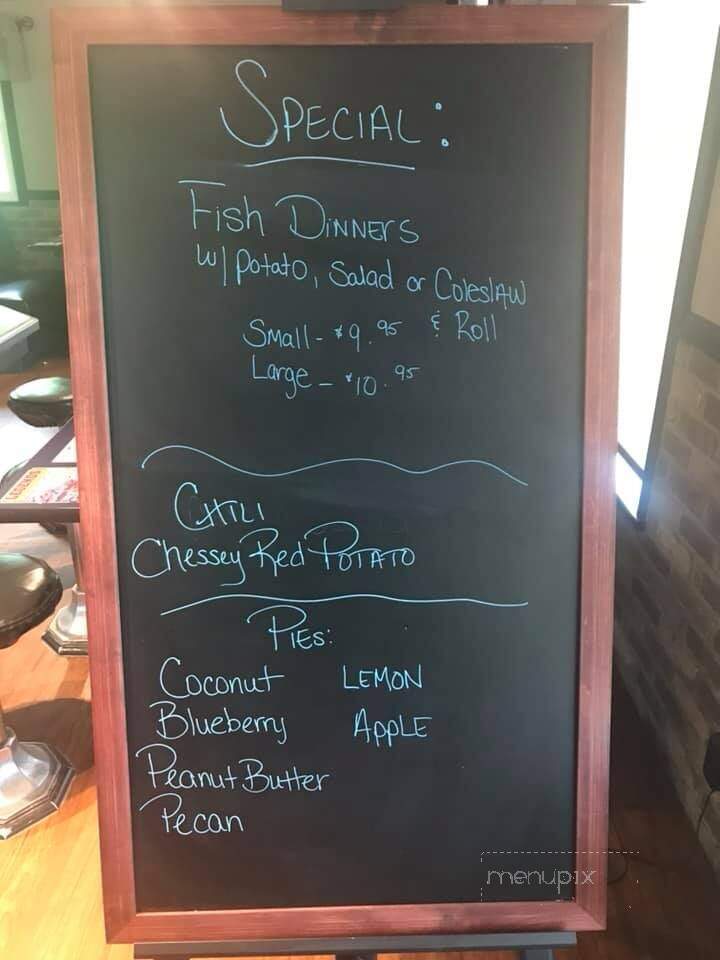 SPECIAL:
Fish DINNERS
w/ Potato, Salad or ColeslAW
Small - $9.95 & Roll
Large - $10.95
CHILI
Chessey Red POTATO
PIES:
Coconut LEMON
Blueberry APPLE
Peanut Butter
Pecan
menupix